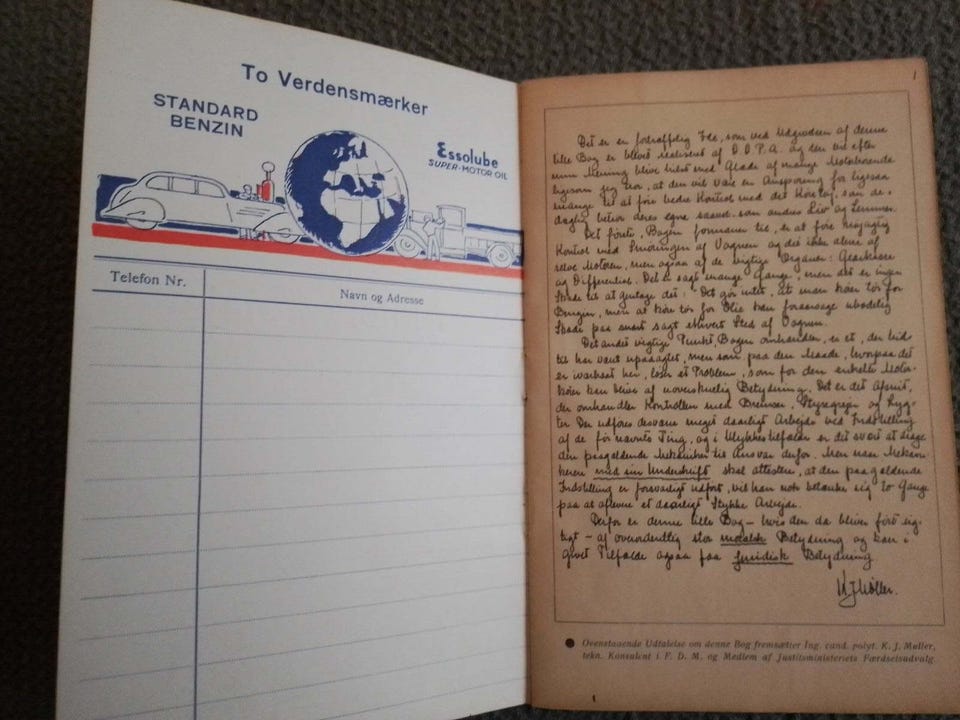 To Verdensmærker
STANDARD
BENZIN
Essolube
SUPER-MOTOR OIL
Telefon Nr.
Navn og Adresse
1
Det er en fortræffelig Ide, som ved Udgivelsen af denne
lille Bog er blevet realiseret af D.D.P.A. og den vil efter
min Mening blive hilst med Glæde af mange Motorkørende
ligesom jeg tror, at den vil være en Ansporing for ligesaa
mange til at føre bedre Kontrol med det Køretøj, som de
daglig betror deres egne saavel som andres Liv og Lemmer.
Det første, Bogen formaner til, er at føre nøjagtig
Kontrol med Smøringen af Vognen og det ikke alene af
selve Motoren, men ogsaa af de vigtige Organer: Gearkasse
og Differential. Det er sagt mange Gange, men det er ingen
Skade til at gentage det: "Det gør intet, at man kører tør for
Benzin, men at køre tør for Olie kan foraarsage ubodelig
Skade paa snart sagt ethvert Sted af Vognen.
Det andet vigtige Punkt, Bogen omhandler, er et, der hid
til har været upaaagtet, men som, paa den Maade, hvorpaa det
er her, løser et Problem, som for den enkelte Motor-
kører kan blive af uoverskuelig Betydning. Det er det Afsnit,
der omhandler Kontrollen med Bremser, Styregrejer og Lyg-
ter. Der udføres desværre meget daarligt Arbejde ved Indstilling
af de før nævnte Ting, og i Ulykkestilfælde er det svært at drage
den paagældende Mekaniker til Ansvar derfor. Men naar Mekani-
keren med sin Underskrift skal attestere, at den paagældende
Indstilling er forsvarligt udført, vil han nok betænke sig to Gange
paa at aflevere et daarligt Stykke Arbejde.
Derfor er denne lille Bog – hvis den da bliver ført rig-
tigt – af overordentlig stor moralsk Betydning og kan i
givet Tilfælde ogsaa faa juridisk Betydning.
K J Møller.
Ovenstaaende Udtalelse om denne Bog fremsætter Ing. cand. polyt. K. J. Møller,
tekn. Konsulent i F. D. M. og Medlem af Justitsministeriets Færdselsudvalg.
1